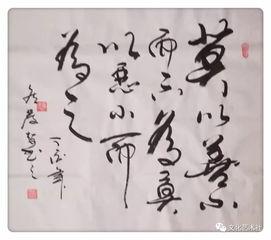 莫以善小
而不為莫
以恶小而
為之
丁酉年
文化艺术社